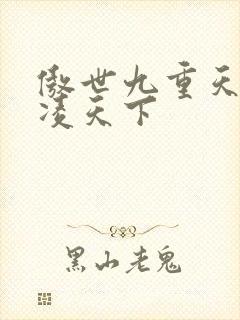 傲世九重天
凌天下
黑山老鬼